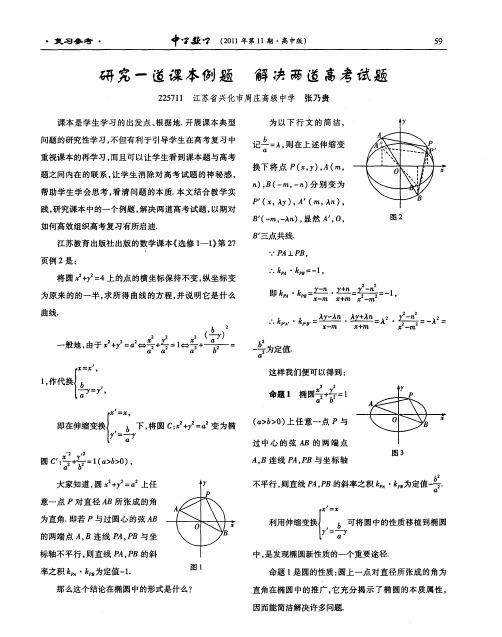 ·复习参考·
中学数学 (2011年第11期·高中版)
59
研究一道课本例题 解决两道高考试题
225711 江苏省兴化市周庄高级中学 张乃贵
课本是学生学习的出发点、根据地. 开展课本典型
问题的研究性学习,不但有利于引导学生在高考复习中
重视课本的再学习,而且可以让学生看到课本题与高考
题之间内在的联系,让学生消除对高考试题的神秘感,
帮助学生学会思考,看清问题的本质. 本文结合教学实
践,研究课本中的一个例题,解决两道高考试题,以期对
如何高效组织高考复习有所启迪.
江苏教育出版社出版的数学课本《选修1—1》第27
页例2是:
将圆x²+y²=4上的点的横坐标保持不变,纵坐标变
为原来的的一半,求所得曲线的方程,并说明它是什么
曲线.
一般地,由于x²+y²=a²⇔x²/a²+y²/a²=1⇔x²/a²+(b/a y)²/b²=
1,作代换{x=x′, b/a y=y′,
即在伸缩变换{x′=x, y′=b/a y 下,将圆C:x²+y²=a²变为椭
圆C′:x′²/a²+y′²/b²=1(a>b>0),
大家知道,圆x²+y²=a²上任
意一点P对直径AB所张成的角
为直角. 即若P与过圆心的弦AB
的两端点A,B连线PA,PB与坐
标轴不平行,则直线PA,PB的斜
率之积k_PA·k_PB为定值-1.
y
P
A
O
x
B
图1
那么这个结论在椭圆中的形式是什么?
为以下行文的简洁,
记b/a=λ,则在上述伸缩变
换下将点P(x,y),A(m,
n),B(-m,-n)分别变为
P′(x,λy),A′(m,λn),
B′(-m,-λn),显然A′,O,
B′三点共线.
y
A
A′
P
P′
O
x
B′
B
图2
∵PA⊥PB,
∴k_PA·k_PB=-1,
即k_PA·k_PB=(y-n)/(x-m)·(y+n)/(x+m)=(y²-n²)/(x²-m²)=-1,
∴k_P′A′·k_P′B′=(λy-λn)/(x-m)·(λy+λn)/(x+m)=λ²·(y²-n²)/(x²-m²)=-λ²=
-b²/a²为定值.
这样我们便可以得到:
命题1 椭圆x²/a²+y²/b²=1
(a>b>0)上任意一点P与
过中心的弦AB的两端点
A,B连线PA,PB与坐标轴
y
P
A
O
x
B
图3
不平行,则直线PA,PB的斜率之积k_PA·k_PB为定值-b²/a².
利用伸缩变换{x′=x y′=b/a y 可将圆中的性质移植到椭圆
中,是发现椭圆新性质的一个重要途径.
命题1是圆的性质:圆上一点对直径所张成的角为
直角在椭圆中的推广,它充分揭示了椭圆的本质属性,
因而能简洁解决许多问题.